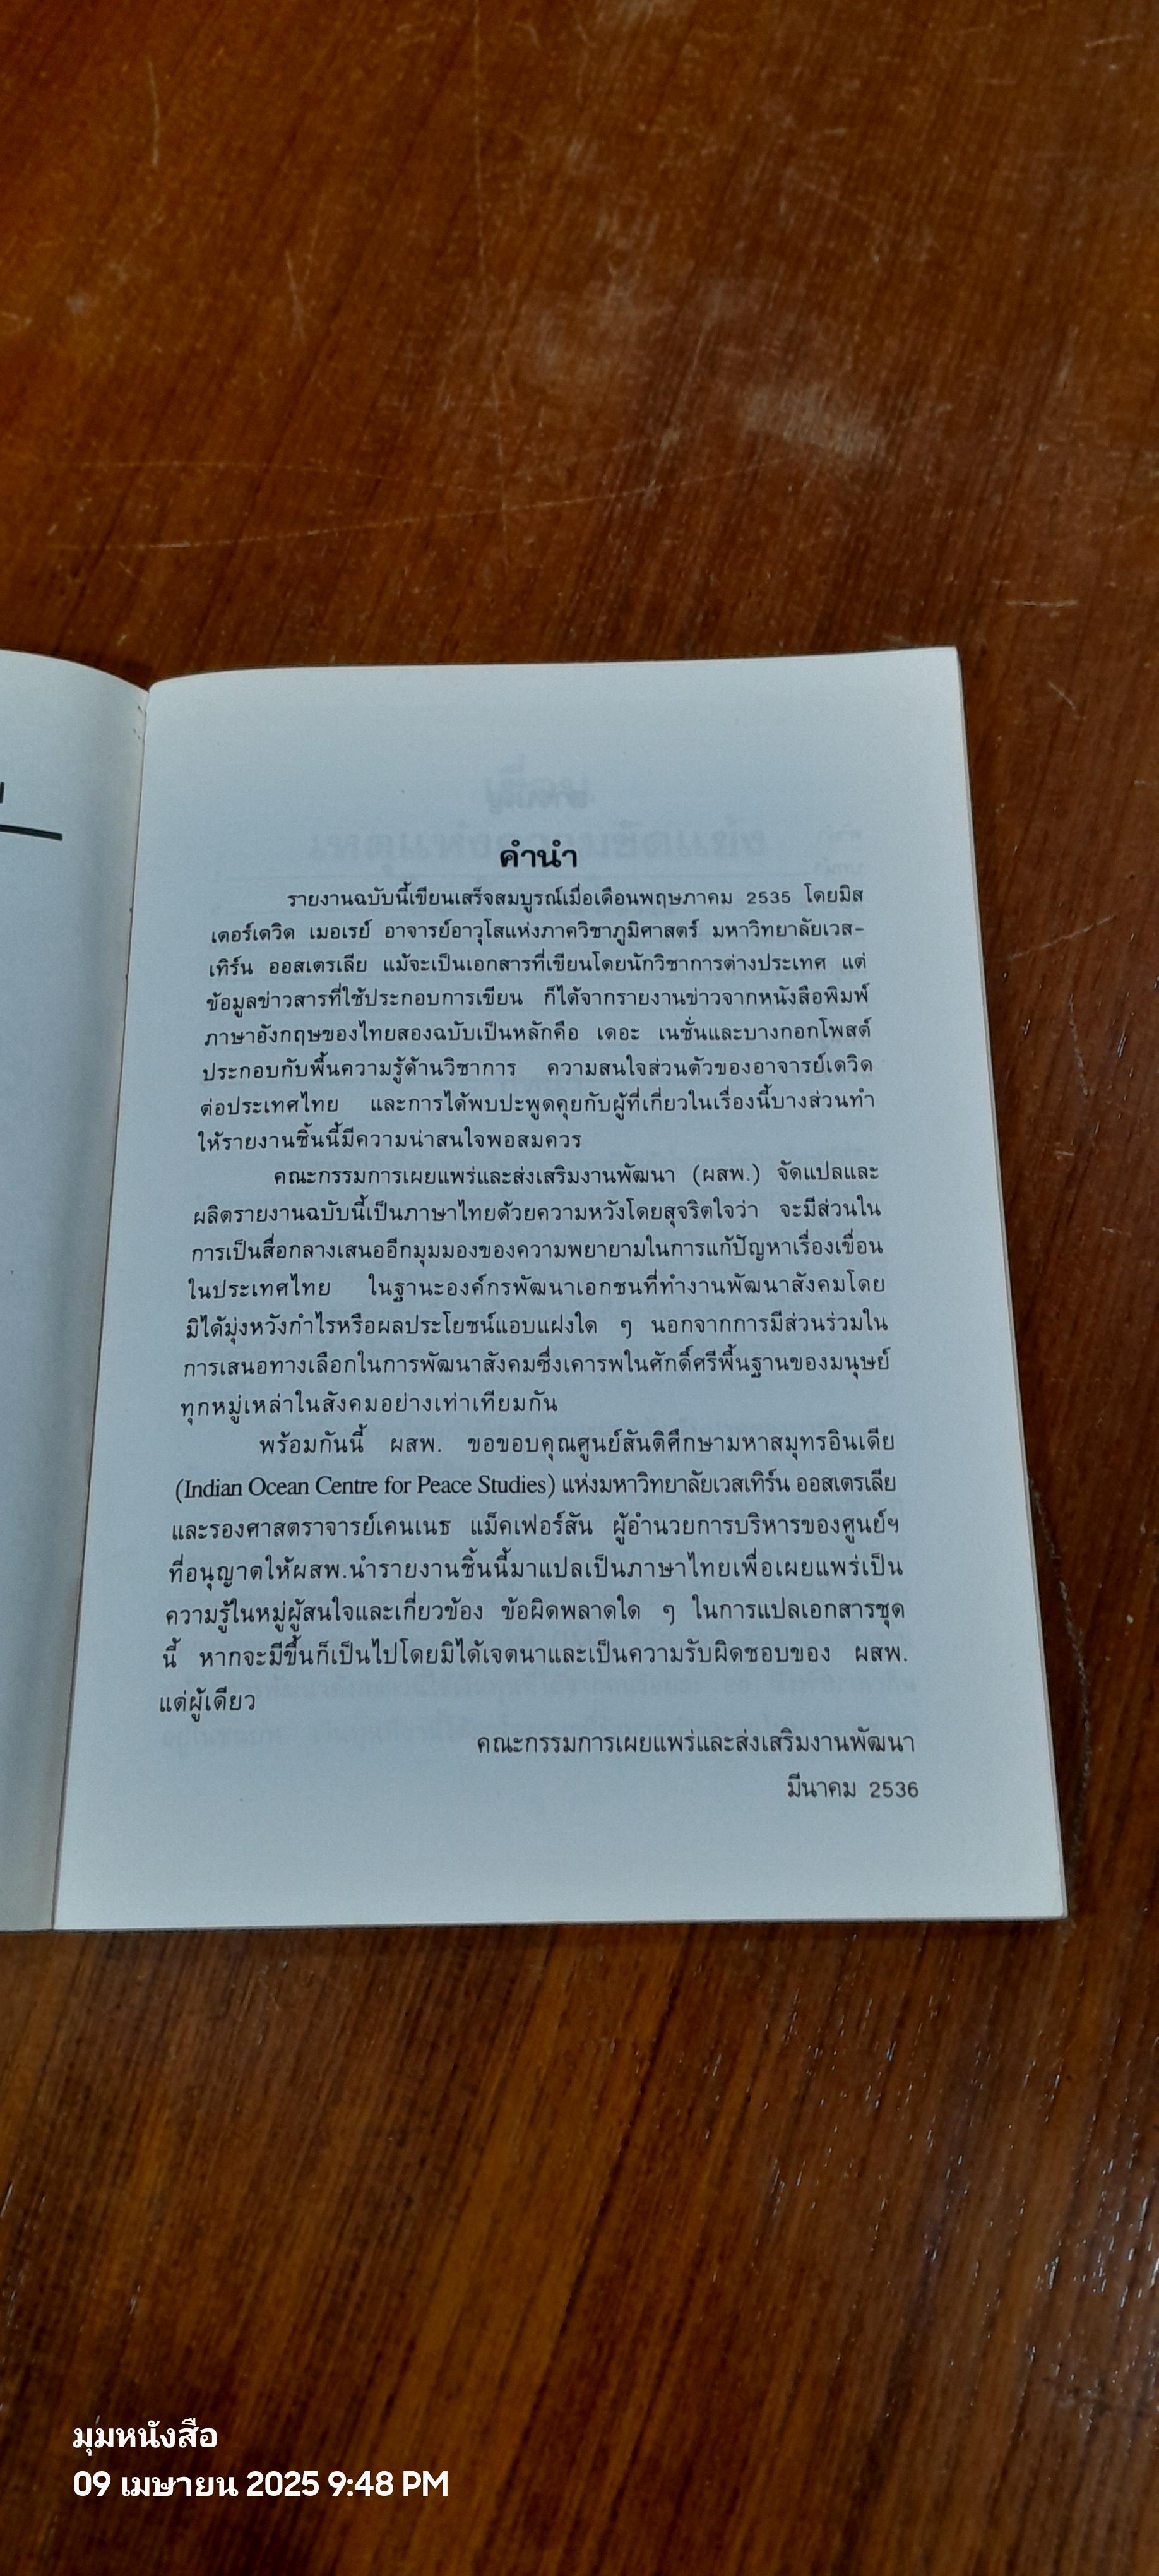 คำนำ
รายงานฉบับนี้เขียนเสร็จสมบูรณ์เมื่อเดือนพฤษภาคม 2535 โดยมิส
เตอร์เดวิด เมอเรย์ อาจารย์อาวุโสแห่งภาควิชาภูมิศาสตร์ มหาวิทยาลัยเวส-
เทิร์น ออสเตรเลีย แม้จะเป็นเอกสารที่เขียนโดยนักวิชาการต่างประเทศ แต่
ข้อมูลข่าวสารที่ใช้ประกอบการเขียน ก็ได้จากรายงานข่าวจากหนังสือพิมพ์
ภาษาอังกฤษของไทยสองฉบับเป็นหลักคือ เดอะ เนชั่นและบางกอกโพสต์
ประกอบกับพื้นความรู้ด้านวิชาการ ความสนใจส่วนตัวของอาจารย์เดวิด
ต่อประเทศไทย และการได้พบปะพูดคุยกับผู้ที่เกี่ยวในเรื่องนี้บางส่วนทำ
ให้รายงานชิ้นนี้มีความน่าสนใจพอสมควร
คณะกรรมการเผยแพร่และส่งเสริมงานพัฒนา (ผสพ.) จัดแปลและ
ผลิตรายงานฉบับนี้เป็นภาษาไทยด้วยความหวังโดยสุจริตใจว่า จะมีส่วนใน
การเป็นสื่อกลางเสนออีกมุมมองของความพยายามในการแก้ปัญหาเรื่องเขื่อน
ในประเทศไทย ในฐานะองค์กรพัฒนาเอกชนที่ทำงานพัฒนาสังคมโดย
มิได้มุ่งหวังกำไรหรือผลประโยชน์แอบแฝงใด ๆ นอกจากการมีส่วนร่วมใน
การเสนอทางเลือกในการพัฒนาสังคมซึ่งเคารพในศักดิ์ศรีพื้นฐานของมนุษย์
ทุกหมู่เหล่าในสังคมอย่างเท่าเทียมกัน
พร้อมกันนี้ ผสพ. ขอขอบคุณศูนย์สันติศึกษามหาสมุทรอินเดีย
(Indian Ocean Centre for Peace Studies) แห่งมหาวิทยาลัยเวสเทิร์น ออสเตรเลีย
และรองศาสตราจารย์เคนเนธ แม็คเฟอร์สัน ผู้อำนวยการบริหารของศูนย์ฯ
ที่อนุญาตให้ผสพ.นำรายงานชิ้นนี้มาแปลเป็นภาษาไทยเพื่อเผยแพร่เป็น
ความรู้ในหมู่ผู้สนใจและเกี่ยวข้อง ข้อผิดพลาดใด ๆ ในการแปลเอกสารชุด
นี้ หากจะมีขึ้นก็เป็นไปโดยมิได้เจตนาและเป็นความรับผิดชอบของ ผสพ.
แต่ผู้เดียว
คณะกรรมการเผยแพร่และส่งเสริมงานพัฒนา
มีนาคม 2536
มุมหนังสือ
09 เมษายน 2025 9:48 PM